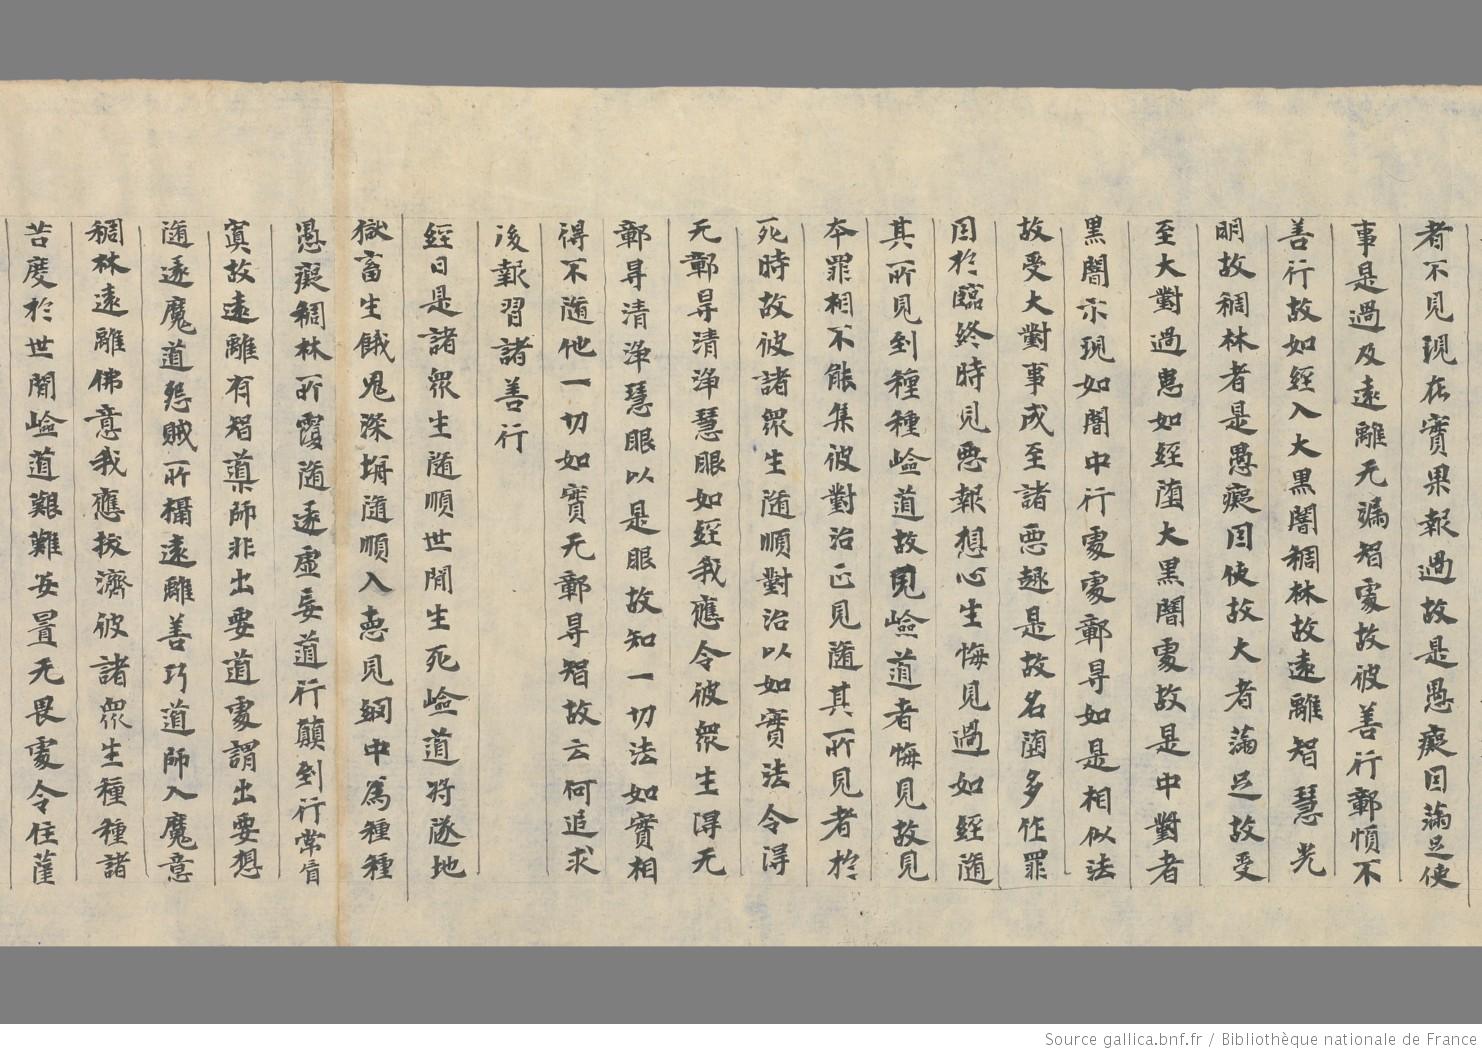 者不見現在實果報過故是愚癡因滿足使
事是過及遠離无漏智處故彼善行鄣憤不
善行故如經入大黑闇稠林故遠離智慧光
明故稠林者是愚癡因使故大者滿足故受
至大對過患如經墮大黑闇處故是中對者
黑闇示現如闇中行處處鄣㝵如是相似法
故受大對事成至諸惡趣是故名墮多作罪
因於臨終時見惡報想心生悔見過如經隨
其所見到種種嶮道故見嶮道者悔見故見
本罪相不能集彼對治正見隨其所見者於
死時故彼諸衆生隨順對治以如實法令得
无鄣㝵清淨慧眼如經我應令彼衆生得无
鄣㝵清淨慧眼以是眼故知一切法如實相
得不隨他一切如實无鄣㝵智故云何追求
後報習諸善行
經曰是諸衆生隨順世間生死嶮道將墜地
獄畜生餓鬼深坑隨順入惡見網中爲種種
愚癡稠林所覆隨逐虛妄道行顛到行常盲
冥故遠離有智導師非出要道處謂出要想
隨逐魔道怨賊所攝遠離善巧道師入魔意
稠林遠離佛意我應拔濟彼諸衆生種種諸
苦度於世間嶮道艱難安置无畏處令住薩
Source gallica.bnf.fr / Bibliothèque nationale de France